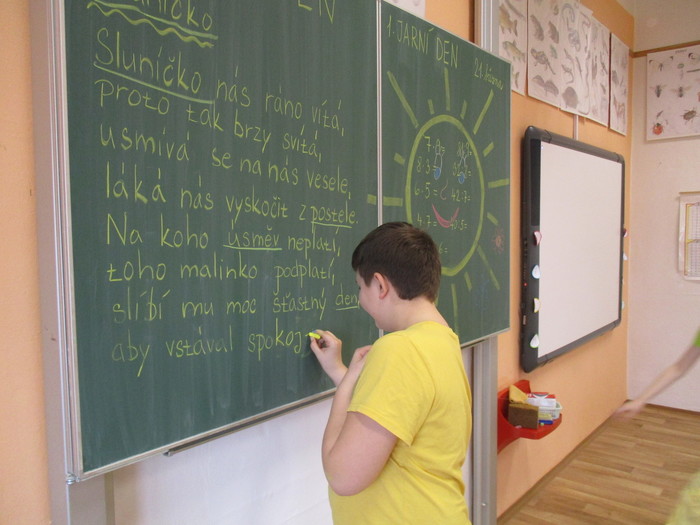 Sluníčko
Sluníčko nás ráno vítá,
proto tak brzy svítá,
usmívá se na nás vesele,
láká nás vyskočit z postele.
Na koho úsměv neplatí,
toho malinko podplatí,
slíbí mu moc šťastný den,
aby vstával spokoj
1. JARNÍ DEN
21. března
8·3=
6·5=
4·7=